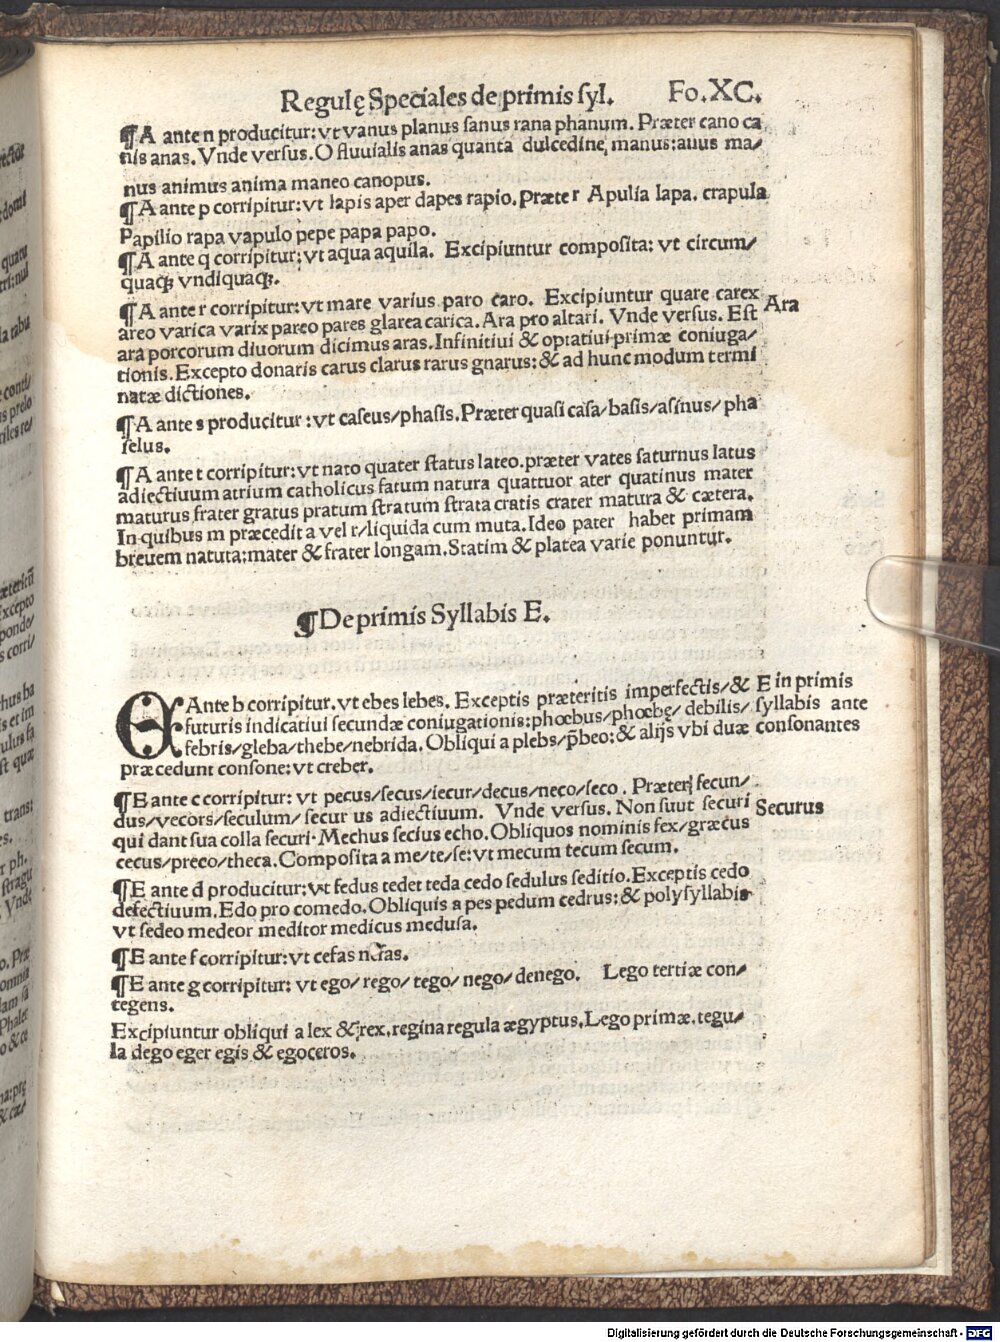 Regulę Speciales de primis ſyl. Fo.XC.
¶A ante n producitur: vt vanus planus ſanus rana phanum. Præter cano ca
nis anas. Vnde verſus. O fluuialis anas quanta dulcedine manus: auus ma/
nus animus anima maneo canopus.
¶A ante p corripitur: vt lapis aper dapes rapio. Præter Apulia lapa. crapula
Papilio rapa vapulo pepe papa papo.
¶A ante q corripitur: vt aqua aquila. Excipiuntur compoſita: vt circum/
quaqꝫ vndiquaqꝫ.
¶A ante r corripitur: vt mare varius paro caro. Excipiuntur quare carex
Ara
areo varica varix pareo pares glarea carica. Ara pro altari. Vnde verſus. Eſt
ara porcorum diuorum dicimus aras. Infinitiui & optatiui primæ coniuga/
tionis. Excepto donaris carus clarus rarus gnarus: & ad hunc modum termi
natæ dictiones.
¶A ante s producitur: vt caſeus/phaſis. Præter quaſi caſa/baſis/aſinus/pha
ſelus.
¶A ante t corripitur: vt nato quater ſtatus lateo. præter vates ſaturnus latus
adiectiuum atrium catholicus fatum natura quattuor ater quatinus mater
maturus frater gratus pratum ſtratum ſtrata cratis crater matura & cætera.
In quibus m præcedit a vel r/liquida cum muta. Ideo pater habet primam
breuem natuta: mater & frater longam. Statim & platea varie ponuntur.
¶De primis Syllabis E.
E Ante b corripitur. vt ebes lebes. Exceptis præteritis imperfectis/&
E in primis
futuris indicatiui secundæ coniugationis: phœbus/phœbę/debilis/
ſyllabis ante
febris/gleba/thebe/nebrida. Obliqui a plebs/p̄beo: & alijs vbi duæ
conſonantes
præcedunt conſone: vt creber.
¶E ante c corripitur: vt pecus/ſecus/iecur/decus/neco/ſeco. Præter ſecun/
dus/vecors/ſeculum/ſecur us adiectiuum. Vnde verſus. Non ſuut ſecuri
Securus
qui dant ſua colla ſecuri. Mechus ſecius echo. Obliquos nominis fex/græcus
cecus/preco/theca. Compoſita a me/te/ſe: vt mecum tecum ſecum.
¶E ante d producitur: vt fedus tedet teda cedo ſedulus ſeditio. Exceptis cedo
defectiuum. Edo pro comedo. Obliquis a pes pedum cedrus: & polyſyllabis
vt ſedeo medeor meditor medicus meduſa.
¶E ante f corripitur: vt cefas nefas.
¶E ante g corripitur: vt ego/rego/tego/nego/denego. Lego tertiæ con/
tegens.
Excipiuntur obliqui a lex & rex. regina regula ægyptus. Lego primæ. tegu/
la dego eger egis & egoceros.
Digitalisierung gefördert durch die Deutsche Forschungsgemeinschaft - DFG